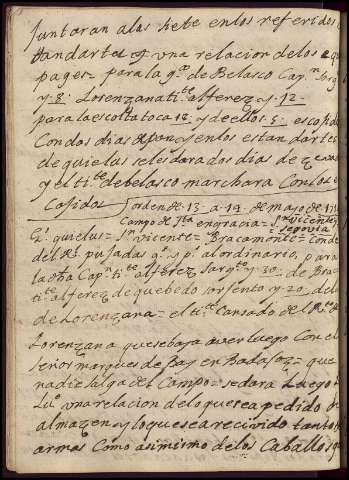 Juntaran alas siete enlos referidos
standartes y una relacion delos e qui
pages = para la g.ª de Belasco Cap.n Sarg
y 8. Lorenzana ti.te alferez y 12
para la escolta toca 18 y de ellos 5. escojidos
Con dos dias de pan y en los estandartes
de quielus seles dara dos dias de
y el ti.te de belasco marchara Con los es
Cojidos orden de 13 a 14 de mayo de
Campo de S.ta engracia = S.n Vicente
Segovia
G.l quielus = S.n Vicente = Bracamonte = Conde
del R.l pujadas g.s y p.s al ordinario, para
la otra Cap.n ti.te alferez Sarg.to y 30 = de Bra
ti.te alferez de quebedo sargento y 20, de
de Lorenzana = el ti.te Cansado del R.to de
Lorenzana que se baya a ver luego Con el
Señor marques de Bay en Badajoz = que
nadie salga del Campo = se dara Luego
una relacion delo que sea pedido de
almazen y lo que sea recivido tanto
armas Como asimismo delos Caballos